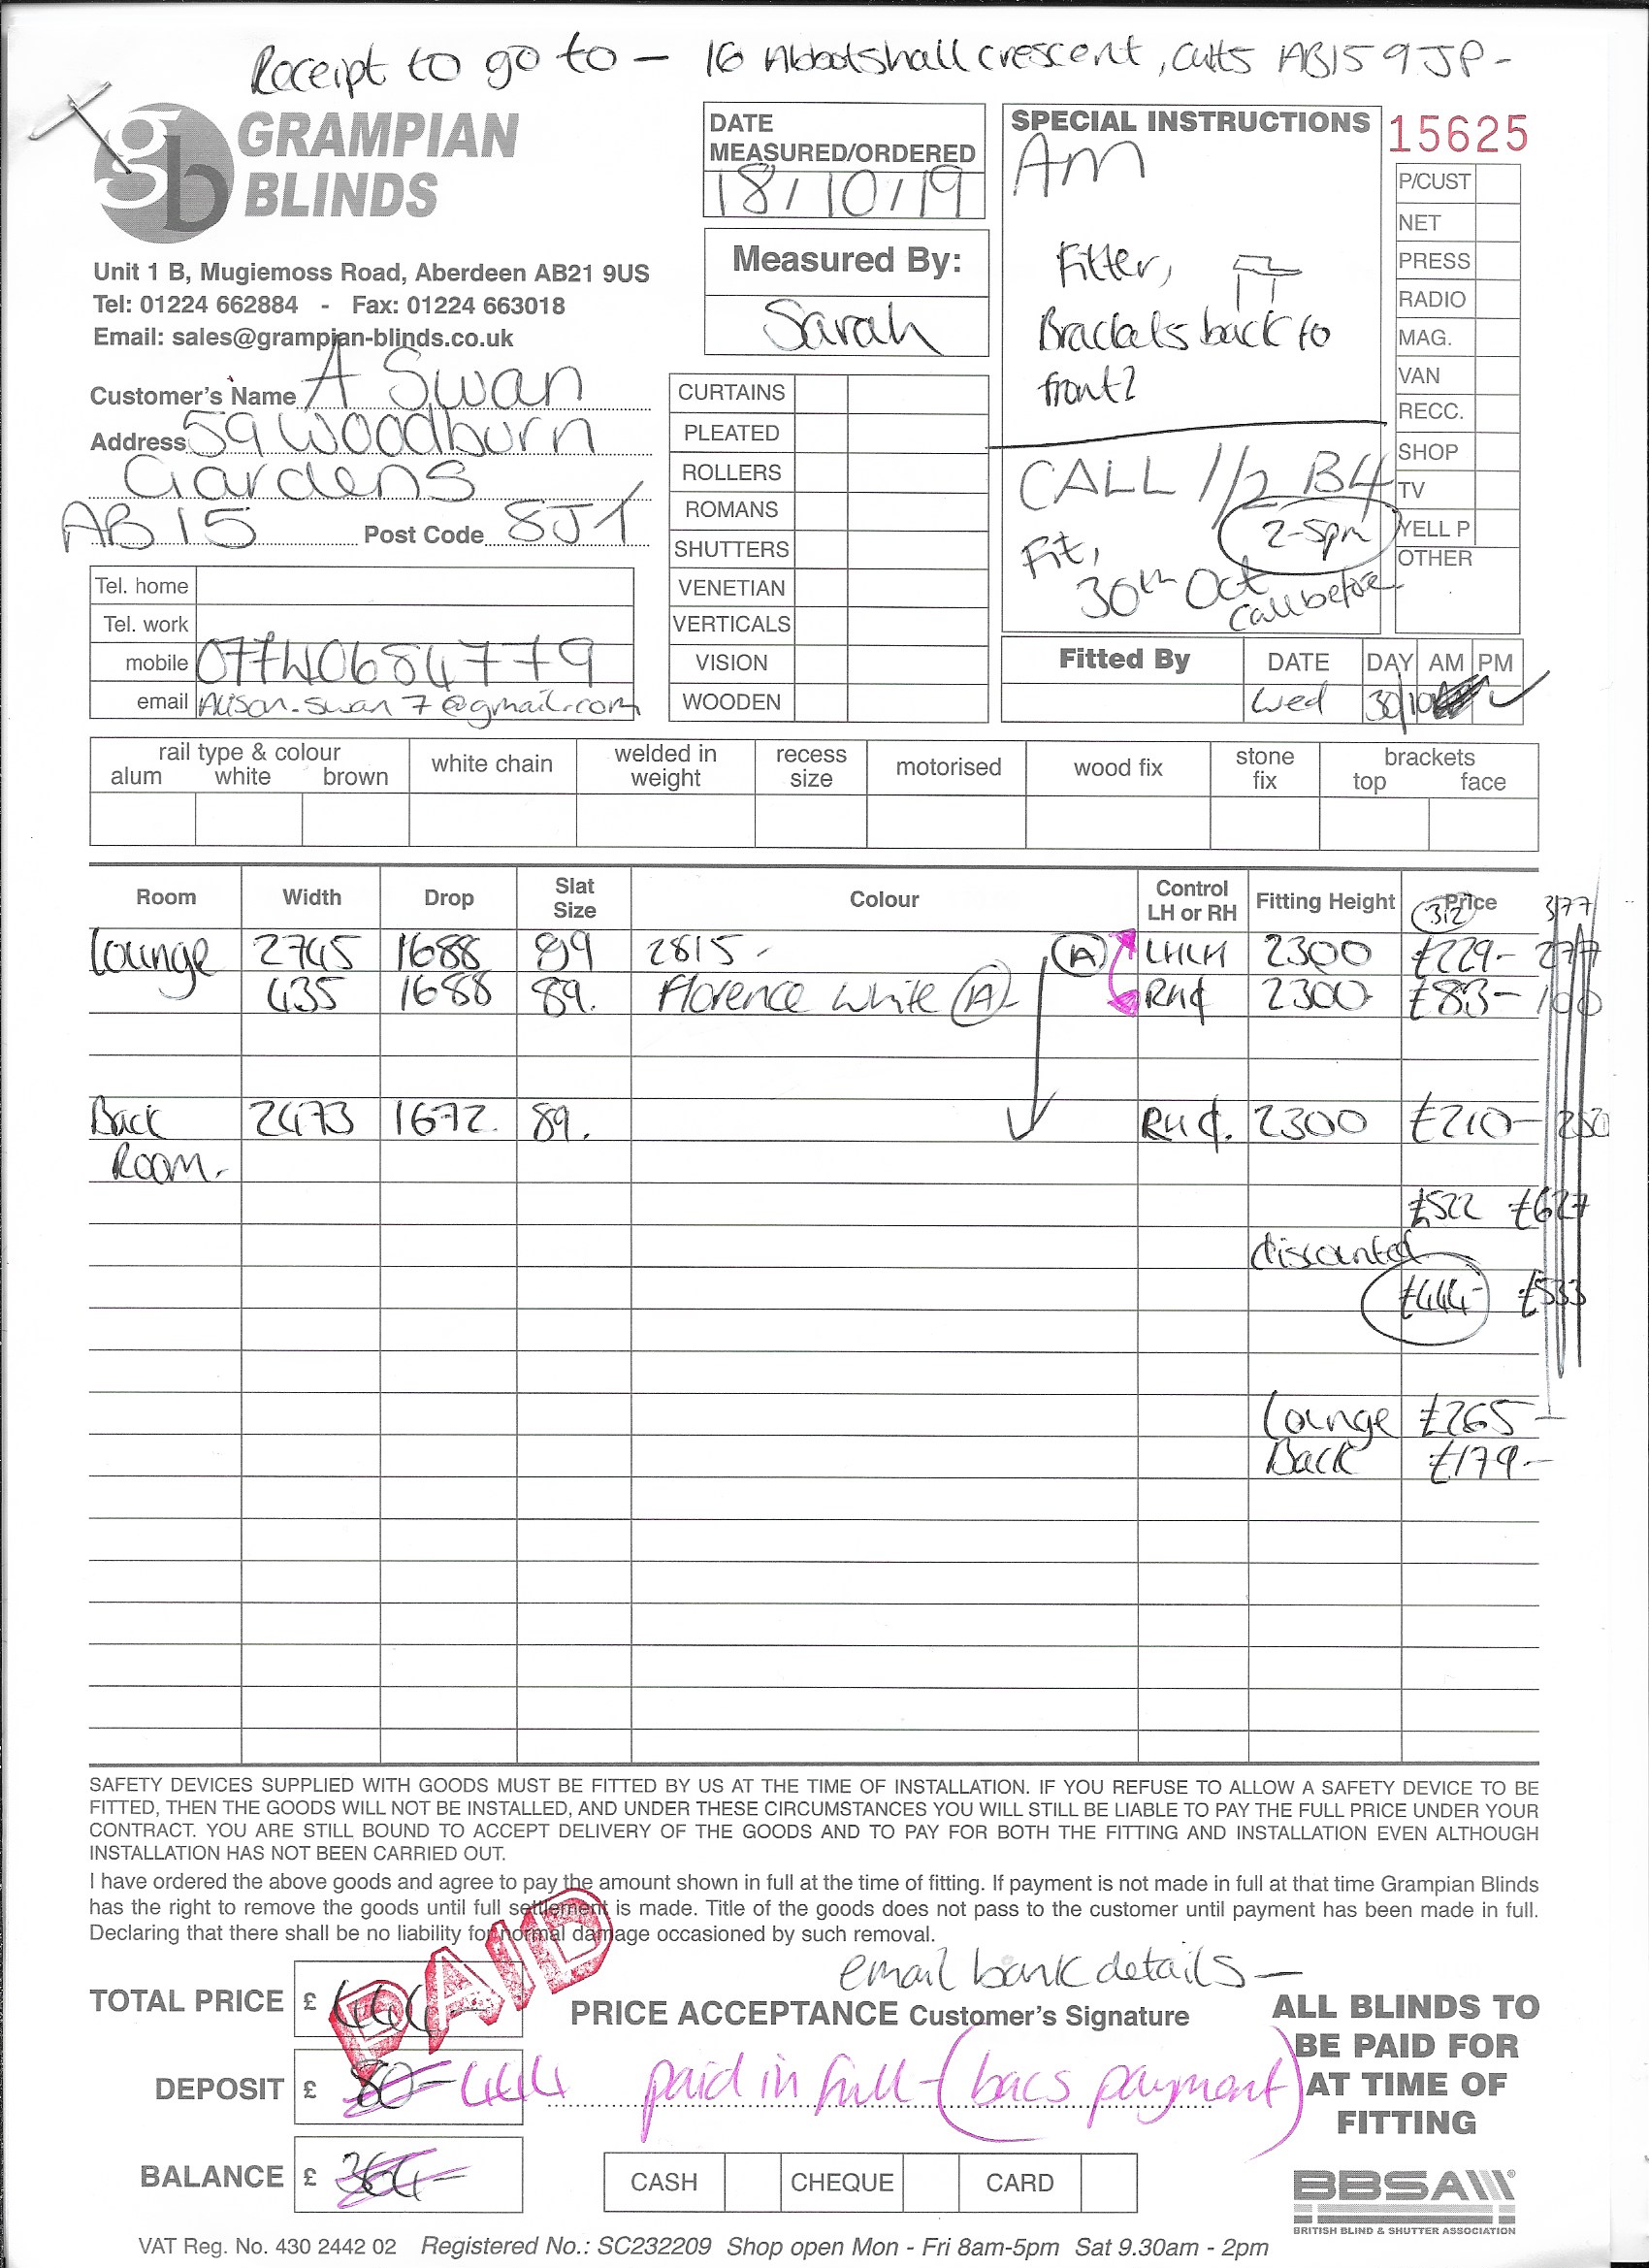 Receipt to go to - 16 Abbotshall crescent, Cults AB15 9JP-
gb GRAMPIAN
BLINDS
Unit 1 B, Mugiemoss Road, Aberdeen AB21 9US
Tel: 01224 662884 - Fax: 01224 663018
Email: sales@grampian-blinds.co.uk
Customer's Name A Swan
Address 59 Woodburn
Gardens
AB15 Post Code 8JT
Tel. home
Tel. work
mobile 07740684779
email Alison.swan7@gmail.com
DATE
MEASURED/ORDERED
18/10/19
Measured By:
Sarah
CURTAINS
PLEATED
ROLLERS
ROMANS
SHUTTERS
VENETIAN
VERTICALS
VISION
WOODEN
SPECIAL INSTRUCTIONS
AM
Fitter,
Brackets back to
front?
CALL 1/2 B4
2-5pm
Fit,
30th Oct
Call before
15625
P/CUST
NET
PRESS
RADIO
MAG.
VAN
RECC.
SHOP
TV
YELL P
OTHER
Fitted By DATE DAY AM PM
Wed 30/10
rail type & colour white chain welded in weight recess size motorised wood fix stone fix brackets
alum white brown top face
Room Width Drop Slat Size Colour Control LH or RH Fitting Height Price
312 377
Lounge 2745 1688 89 2815 - (A) LHLH 2300 £229- 277
435 1688 89. Florence white (A) RH¢ 2300 £83- 100
Back 2473 1672. 89. RH¢. 2300 £210- 250
Room.
£522 £627
discounted
£444- £533
Lounge £265-
Back £179-
SAFETY DEVICES SUPPLIED WITH GOODS MUST BE FITTED BY US AT THE TIME OF INSTALLATION. IF YOU REFUSE TO ALLOW A SAFETY DEVICE TO BE
FITTED, THEN THE GOODS WILL NOT BE INSTALLED, AND UNDER THESE CIRCUMSTANCES YOU WILL STILL BE LIABLE TO PAY THE FULL PRICE UNDER YOUR
CONTRACT. YOU ARE STILL BOUND TO ACCEPT DELIVERY OF THE GOODS AND TO PAY FOR BOTH THE FITTING AND INSTALLATION EVEN ALTHOUGH
INSTALLATION HAS NOT BEEN CARRIED OUT.
I have ordered the above goods and agree to pay the amount shown in full at the time of fitting. If payment is not made in full at that time Grampian Blinds
has the right to remove the goods until full settlement is made. Title of the goods does not pass to the customer until payment has been made in full.
Declaring that there shall be no liability for normal damage occasioned by such removal.
email bank details -
TOTAL PRICE £ 444-
PAID
PRICE ACCEPTANCE Customer's Signature
DEPOSIT £ 80- 444 paid in full - (bacs payment)
BALANCE £ 364-
CASH CHEQUE CARD
ALL BLINDS TO
BE PAID FOR
AT TIME OF
FITTING
BBSA
BRITISH BLIND & SHUTTER ASSOCIATION
VAT Reg. No. 430 2442 02 Registered No.: SC232209 Shop open Mon - Fri 8am-5pm Sat 9.30am - 2pm